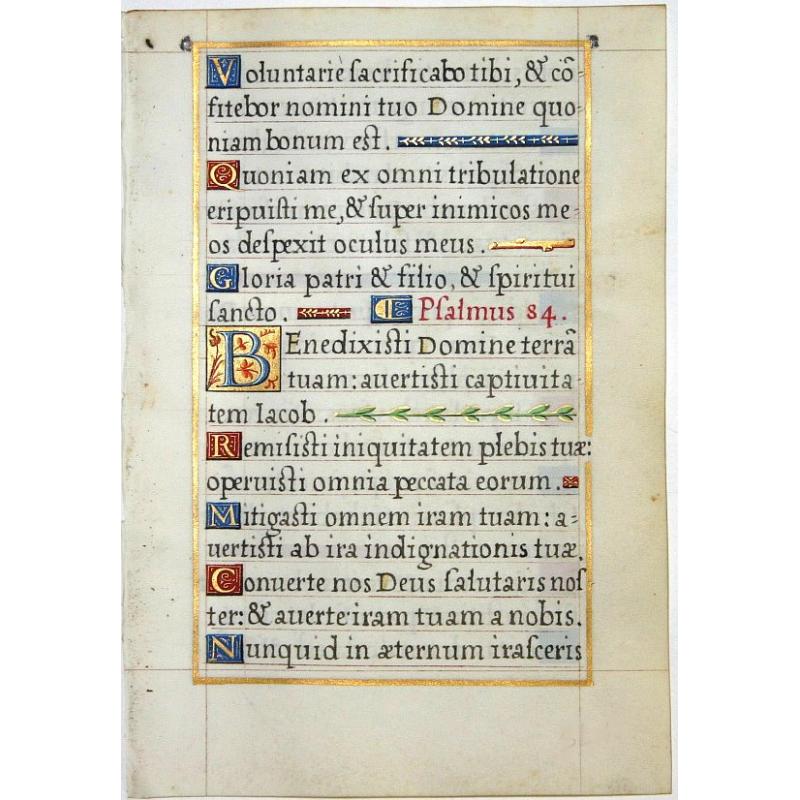 Voluntariè sacrificabo tibi, & cō-
fitebor nomini tuo Domine quo-
niam bonum est.
Quoniam ex omni tribulatione
eripuisti me, & super inimicos me-
os despexit oculus meus.
Gloria patri & filio, & spiritui
sancto. Psalmus 84.
BEnedixisti Domine terrā
tuam: avertisti captivita-
tem Iacob.
Remisisti iniquitatem plebis tuæ:
operuisti omnia peccata eorum.
Mitigasti omnem iram tuam: a-
vertisti ab ira indignationis tuæ.
Conuerte nos Deus salutaris nos
ter: & averte iram tuam a nobis.
Nunquid in æternum irasceris